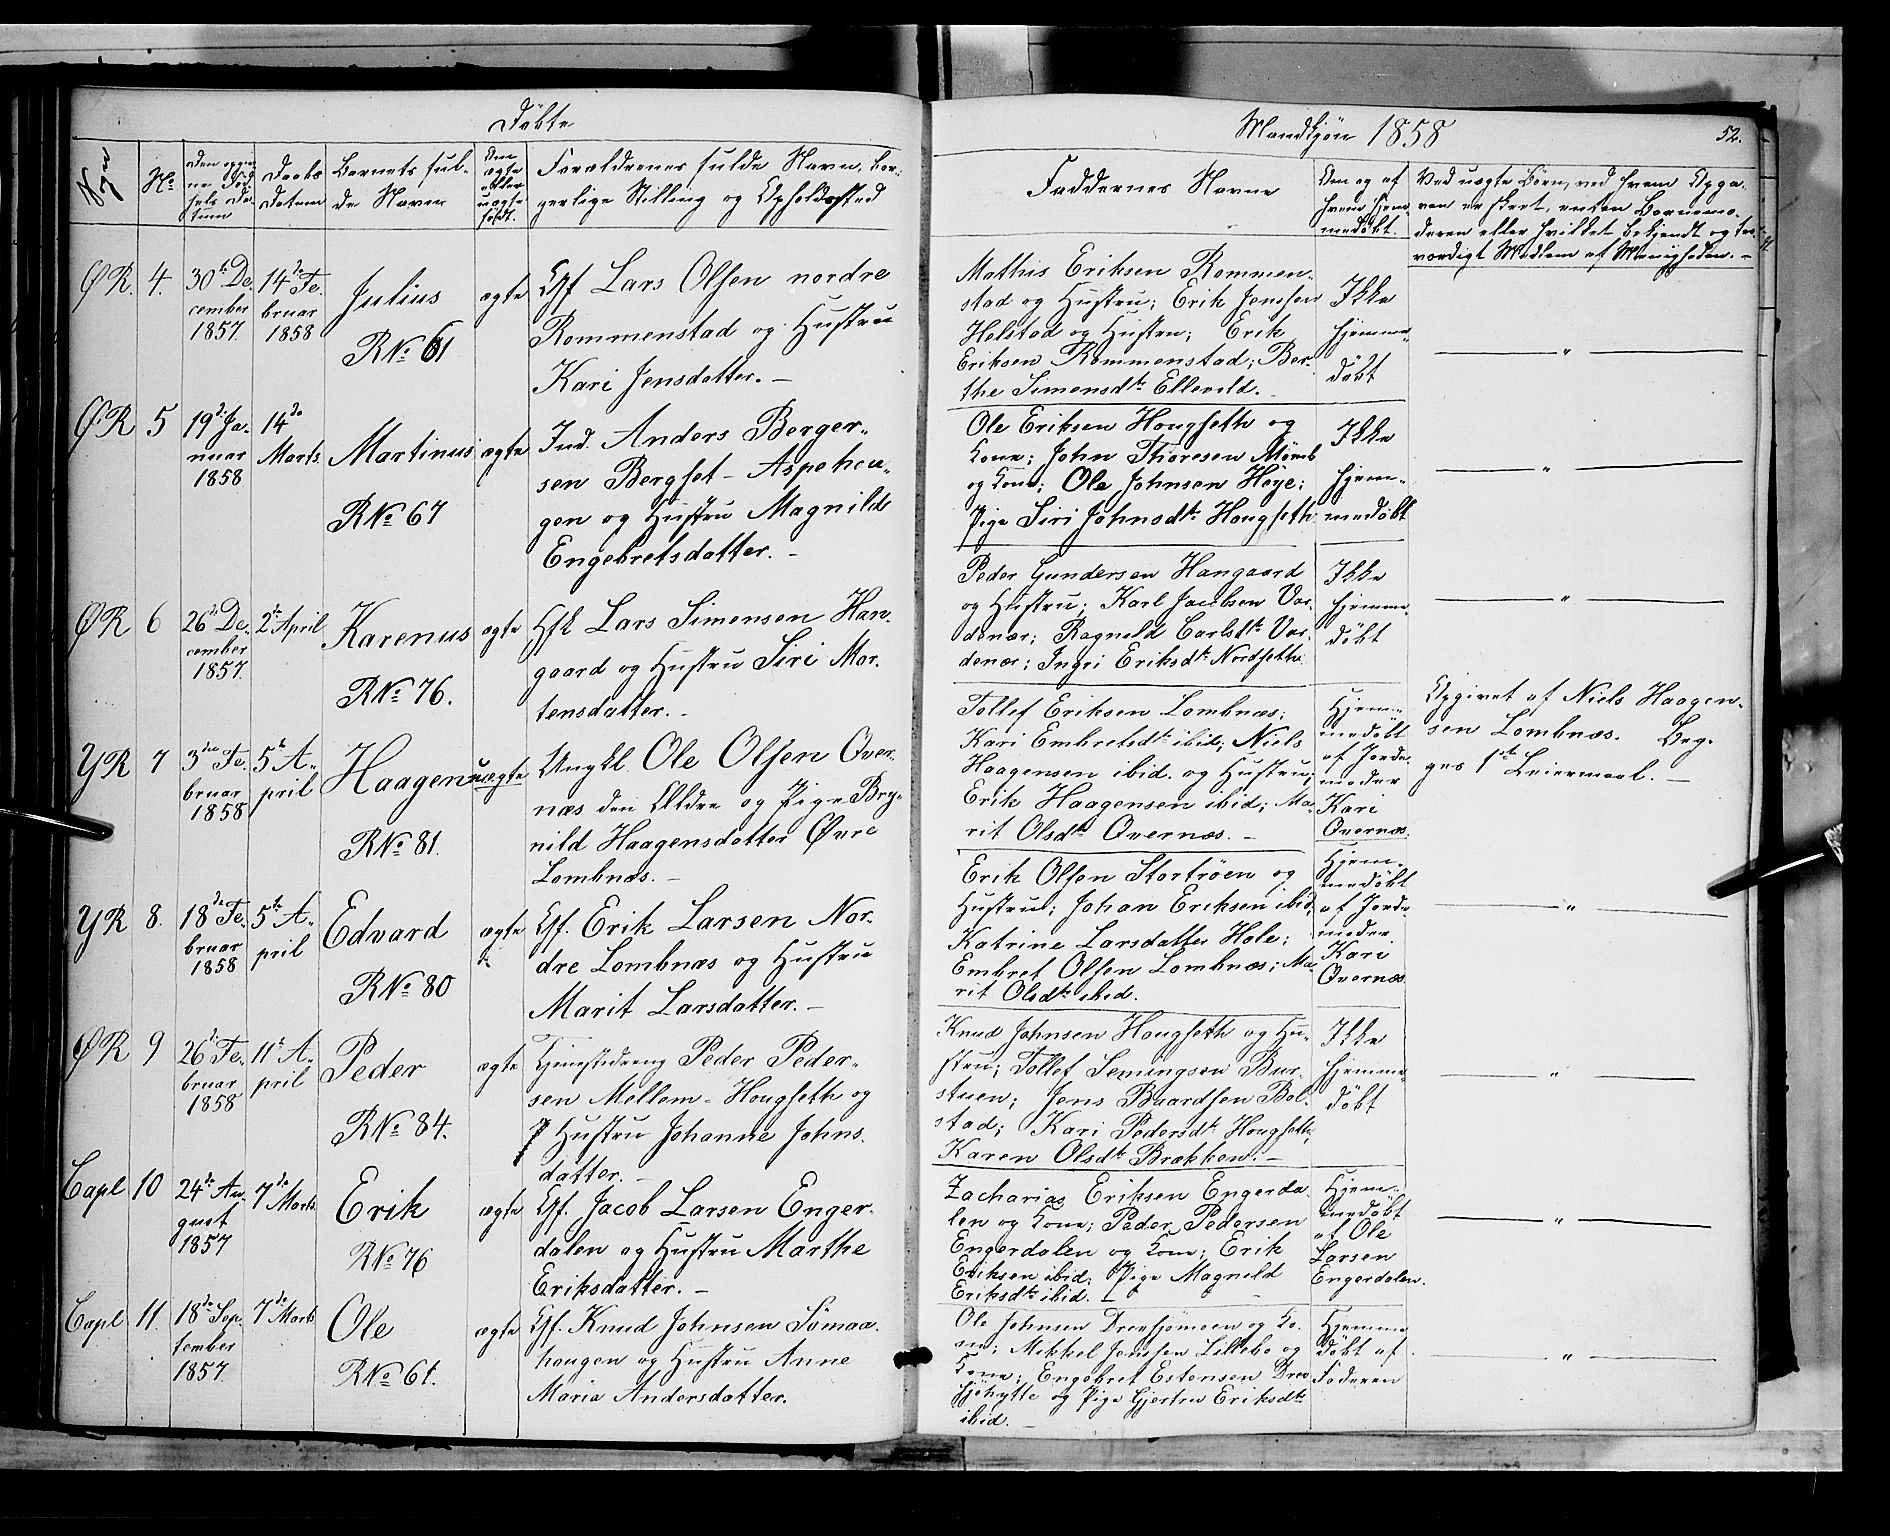 Døbte
Mandkjøn 1858
52.
No
Den opgiv-
ne Fød-
sels Da-
tum
Daabs
Datum
Barnets ful-
de Navn
Om
ægte
eller
uægte
født.
Forældrenes fulde Navn, bor-
gerlige Stilling og Opholdssted
Faddernes Navne
Om og af
hvem hjem-
medøbt.
Ved uægte Børn, ved hvem Opga-
ven er skeet, enten Barnemo-
deren eller hvilket bekjendt og tro-
værdigt Medlem af Menigheden. -
ØR. 4.
30te De-
cember
1857.
14de Fe-
bruar
1858
Julius
RNo 61
ægte
Gf Lars Olsen nordre
Rommenstad og Hustru
Kari Jensdatter. -
Mathis Eriksen Rommen-
stad og Hustru; Erik Jenssen
Holstad og Hustru; Erik
Eriksen Rommenstad; Ber-
the Simensdtr Ellevold. -
Ikke
hjemme-
døbt
"
ØR 5
19de Ja-
nuar
1858
14de
Marts.
Martinus
RNo 67
ægte
Ind. Anders Berger-
sen Bergset - Aspehau-
gen og Hustru Magnild
Engebretsdatter. -
Ole Eriksen Hougseth og
Kone; John Thoresen Mømb
og Kone; Ole Johnsen Høye;
Pige Siri Johnsdtr Hougseth
Ikke
hjem-
medøbt
"
ØR 6
26de De-
cember
1857.
2den April
Karenus
RNo 76.
ægte
Hsk Lars Simensen Han-
gaard og Hustru Siri Mor-
tensdatter. -
Peder Gundersen Hangaard
og Hustru; Karl Jacobsen Var-
denær; Ragneld Carlsdtr Var-
denær; Ingri Eriksdtr Nordseth
Ikke
hjemme-
døbt
"
YR 7
3die Fe-
bruar
1858
5te A-
pril
Haagen
RNo 81.
uægte
Ungkl. Ole Olsen Over-
næs den Eldre og Pige Bry-
nild Haagensdatter Øvre
Lombnæs. -
Tollef Eriksen Lombnæs;
Kari Embretsdtr ibid; Niels
Haagensen ibid. og Hustru;
Erik Haagensen ibid; Ma-
rit Olsdtr Overnæs. -
Hjem-
medøbt
af Jorde-
moder
Kari
Overnæs.
Opgivet af Niels Haagen-
sen Lombnæs. Beg-
ges 1ste Leiermaal. -
YR 8.
18de Fe-
bruar
1858
5te A-
pril
Edvard
RNo 80
ægte
Gf. Erik Larsen Nor-
dre Lombnæs og Hustru
Marit Larsdatter. -
Erik Olsen Stortrøen og
Hustru; Johan Eriksen ibid;
Katrine Larsdatter Hole;
Embret Olsen Lombnæs; Ma-
rit Olsdtr ibid.
Hjem-
medøbt
af Jorde-
moder
Kari
Overnæs
"
ØR 9
26de Fe-
bruar
1858
11te A-
pril
Peder
RNo 84.
ægte
Tjenestedreng Peder Peder-
sen Mellem-Hougseth og
Hustru Johanne Johns-
datter. -
Knud Johnsen Hougseth og Hu-
stru; Tollef Semingsen Bur-
stuen; Jens Baardsen Bol-
stad; Kari Pedersdtr Hougseth;
Karen Olsdtr Brækken. -
Ikke
hjemme-
døbt
"
Capl 10
24de Au-
gust
1857
7de Marts.
Erik
RNo 76
ægte
Gf. Jacob Larsen Enger-
dalen og Hustru Marthe
Eriksdatter. -
Zacharias Eriksen Engerda-
len og Kone; Peder Pedersen
Engerdalen og Kone; Erik
Eriksen ibid; Pige Magnild
Eriksdtr ibid.
Hjem-
medøbt
af Ole
Larsen
Engerdalen.
"
Capl 11.
18de Sep-
tember
1857.
7de Marts
Ole
RNo 61.
ægte
Gf. Knud Johnsen Sømaa-
hougen og Hustru Anne
Maria Andersdatter.
Ole Johnsen Drevsjømoen og Ko-
ne; Mikkel Jenssen Lillebo og
Kone; Engebret Estensen Drev-
sjøhytte og Pige Gjertru Eriksdtr
ibid. -
Hjemme-
døbt af
Faderen
"